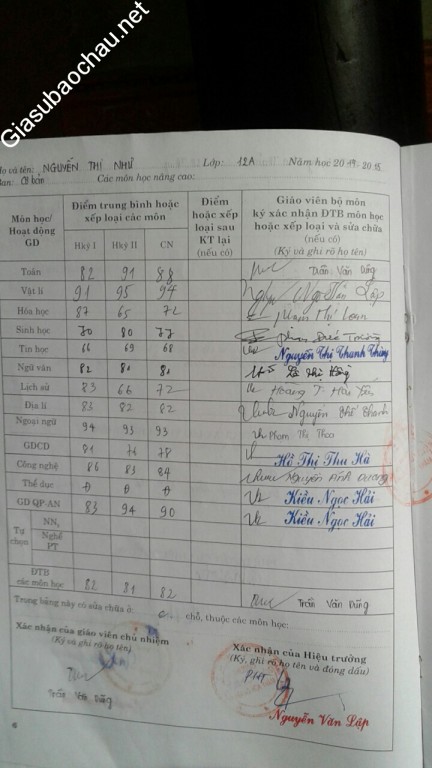 Giasubaochau.net
Họ và tên: NGUYỄN THỊ NHƯ Lớp: 12A Năm học 20
Ban: Cơ bản Các môn học nâng cao:
Môn học/ Hoạt động GD
Điểm trung bình hoặc xếp loại các môn
Hkỳ I Hkỳ II CN
Điểm hoặc xếp loại sau KT lại (nếu có)
Giáo viên bộ môn ký xác nhận ĐTB môn học hoặc loại và sửa chữa (nếu có) (Ký và ghi rõ họ tên)
Toán 82 91 88 Trần Văn Dũng
Vật lí 91 95 94
Hóa học 87 65 72 Phạm Thị Loan
Sinh học 70 80 77
Tin học 66 69 68 Nguyễn Thị Thanh Thủy
Ngữ văn 82 80 81
Lịch sử 83 66 72 Hoàng T. Hải Yến
Địa lí 83 82 82 Nguyễn
Ngoại ngữ 94 93 93 Phạm Thị Thoa
GDCD 81 76 78 Hồ Thị Thu Hà
Công nghệ 86 83 84 Nguyễn Ánh Dương
Thể dục Đ Đ Đ Kiều Ngọc Hải
GD QP-AN 83 94 90 Kiều Ngọc Hải
Tự chọn
NN,
Nghề PT
ĐTB các môn học 82 81 82 Trần Văn Dũng
Trong bảng này có sửa chữa ở: 0 chỗ, thuộc các môn học:
Xác nhận của giáo viên chủ nhiệm
(Ký và ghi rõ họ tên)
Trần Văn Dũng
Xác nhận của Hiệu trưởng
(Ký, ghi rõ họ tên và đóng dấu)
PHT
Nguyễn Văn Lập
6